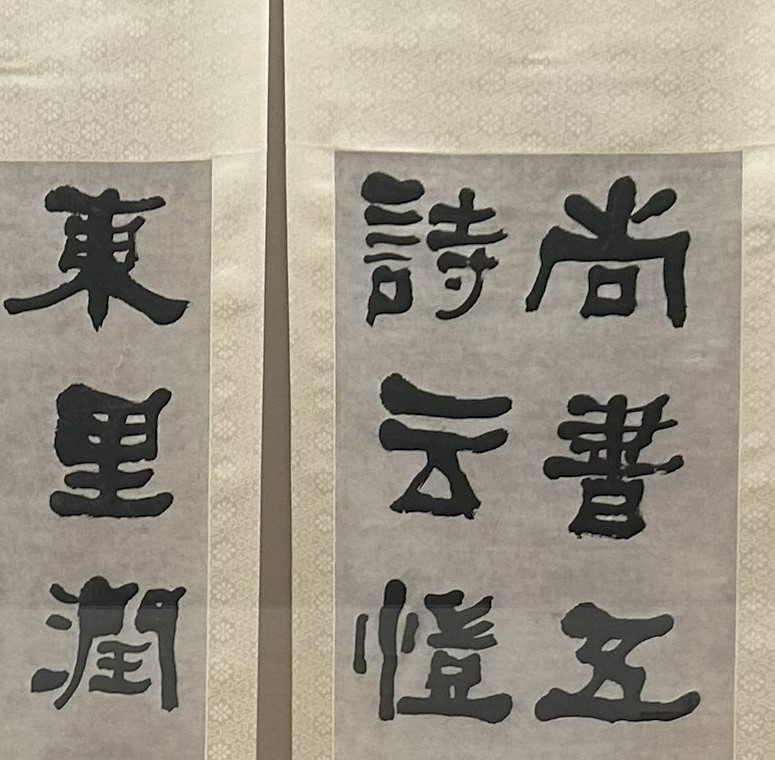 尚書五
詩云愷
東里潤